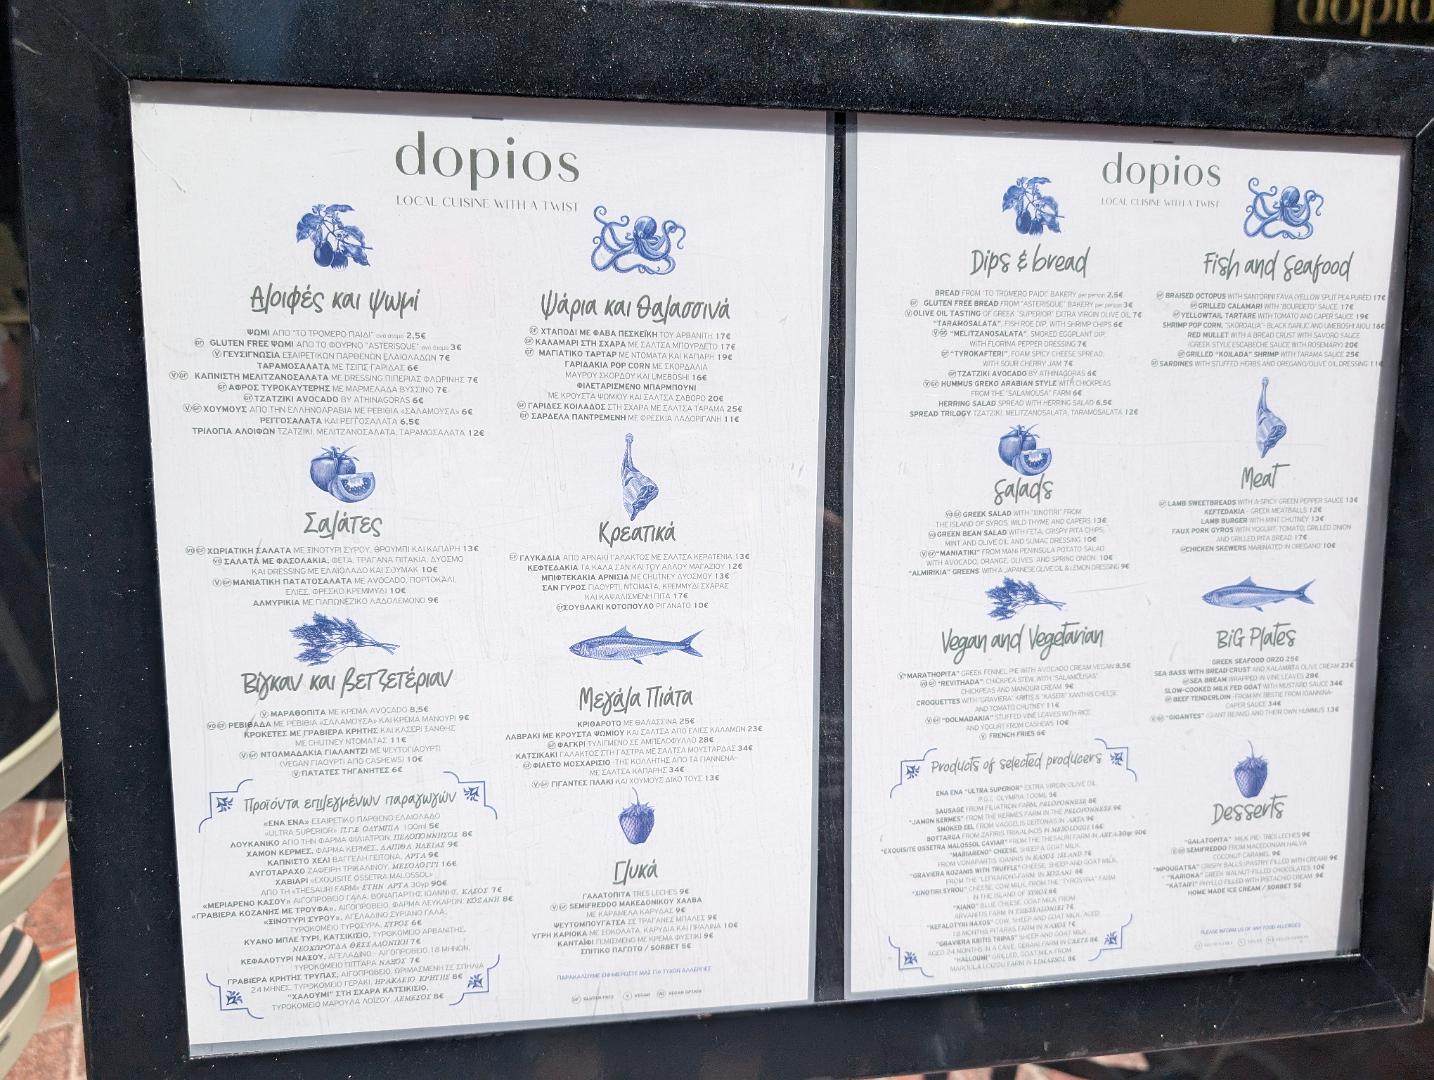 dopio
dopios
LOCAL CUISINE WITH A TWIST
Αλοιφές και Ψωμί
ΨΩΜΙ ΑΠΟ "ΤΟ ΤΡΟΜΕΡΟ ΠΑΙΔΙ" ανά άτομο 2,5€
GF GLUTEN FREE ΨΩΜΙ ΑΠΟ ΤΟ ΦΟΥΡΝΟ "ASTERISQUE" ανά άτομο 3€
V ΓΕΥΣΙΓΝΩΣΙΑ ΕΞΑΙΡΕΤΙΚΩΝ ΠΑΡΘΕΝΩΝ ΕΛΑΙΟΛΑΔΩΝ 7€
ΤΑΡΑΜΟΣΑΛΑΤΑ ΜΕ ΤΣΙΠΣ ΓΑΡΙΔΑΣ 6€
V GF ΚΑΠΝΙΣΤΗ ΜΕΛΙΤΖΑΝΟΣΑΛΑΤΑ ΜΕ DRESSING ΠΙΠΕΡΙΑΣ ΦΛΩΡΙΝΗΣ 7€
GF ΑΦΡΟΣ ΤΥΡΟΚΑΥΤΕΡΗΣ ΜΕ ΜΑΡΜΕΛΑΔΑ ΒΥΣΣΙΝΟ 7€
GF TZATZIKI AVOCADO BY ATHINAGORAS 6€
V GF ΧΟΥΜΟΥΣ ΑΠΟ ΤΗΝ ΕΛΛΗΝΟΑΡΑΒΙΑ ΜΕ ΡΕΒΙΘΙΑ «ΣΑΛΑΜΟΥΣΑ» 6€
ΡΕΓΓΟΣΑΛΑΤΑ ΚΑΙ ΡΕΓΓΟΣΑΛΑΤΑ 6,5€
ΤΡΙΛΟΓΙΑ ΑΛΟΙΦΩΝ ΤΖΑΤΖΙΚΙ, ΜΕΛΙΤΖΑΝΟΣΑΛΑΤΑ, ΤΑΡΑΜΟΣΑΛΑΤΑ 12€
Σαλάτες
VO GF ΧΩΡΙΑΤΙΚΗ ΣΑΛΑΤΑ ΜΕ ΞΙΝΟΤΥΡΙ ΣΥΡΟΥ, ΘΡΟΥΜΠΙ ΚΑΙ ΚΑΠΑΡΗ 13€
VO ΣΑΛΑΤΑ ΜΕ ΦΑΣΟΛΑΚΙΑ, ΦΕΤΑ, ΤΡΑΓΑΝΑ ΠΙΤΑΚΙΑ, ΔΥΟΣΜΟ
ΚΑΙ DRESSING ΜΕ ΕΛΑΙΟΛΑΔΟ ΚΑΙ ΣΟΥΜΑΚ 10€
V GF ΜΑΝΙΑΤΙΚΗ ΠΑΤΑΤΟΣΑΛΑΤΑ ΜΕ AVOCADO, ΠΟΡΤΟΚΑΛΙ,
ΕΛΙΕΣ, ΦΡΕΣΚΟ ΚΡΕΜΜΥΔΙ 10€
ΑΛΜΥΡΙΚΙΑ ΜΕ ΓΙΑΠΩΝΕΖΙΚΟ ΛΑΔΟΛΕΜΟΝΟ 9€
Βίγκαν και βετζετέριαν
V ΜΑΡΑΘΟΠΙΤΑ ΜΕ ΚΡΕΜΑ AVOCADO 8,5€
VO GF ΡΕΒΙΘΑΔΑ ΜΕ ΡΕΒΙΘΙΑ «ΣΑΛΑΜΟΥΣΑ» ΚΑΙ ΚΡΕΜΑ ΜΑΝΟΥΡΙ 9€
ΚΡΟΚΕΤΕΣ ΜΕ ΓΡΑΒΙΕΡΑ ΚΡΗΤΗΣ ΚΑΙ ΚΑΣΕΡΙ ΞΑΝΘΗΣ
ΜΕ CHUTNEY ΝΤΟΜΑΤΑΣ 11€
V GF ΝΤΟΛΜΑΔΑΚΙΑ ΓΙΑΛΑΝΤΖΙ ΜΕ ΨΕΥΤΟΓΙΑΟΥΡΤΙ
(VEGAN ΓΙΑΟΥΡΤΙ ΑΠΟ CASHEWS) 10€
V ΠΑΤΑΤΕΣ ΤΗΓΑΝΗΤΕΣ 6€
Προϊόντα επιλεγμένων παραγωγών
«ΕΝΑ ΕΝΑ» ΕΞΑΙΡΕΤΙΚΟ ΠΑΡΘΕΝΟ ΕΛΑΙΟΛΑΔΟ
«ULTRA SUPERIOR» Π.Γ.Ε. ΟΛΥΜΠΙΑ 100ml 5€
ΛΟΥΚΑΝΙΚΟ ΑΠΟ ΤΗΝ ΦΑΡΜΑ ΦΙΛΙΑΤΡΩΝ, ΠΕΛΟΠΟΝΝΗΣΟΣ 8€
ΧΑΜΟΝ ΚΕΡΜΕΣ, ΦΑΡΜΑ ΚΕΡΜΕΣ, ΛΑΠΙΘΑ ΗΛΕΙΑΣ 9€
ΚΑΠΝΙΣΤΟ ΧΕΛΙ ΒΑΓΓΕΛΗ ΓΕΙΤΟΝΑ, ΑΡΤΑ 9€
ΑΥΓΟΤΑΡΑΧΟ ΖΑΦΕΙΡΗ ΤΡΙΚΑΛΙΝΟΥ, ΜΕΣΟΛΟΓΓΙ 16€
ΧΑΒΙΑΡΙ «EXQUISITE OSSETRA MALOSSOL»
ΑΠΟ ΤΗ «THESAURI FARM» ΣΤΗΝ ΑΡΤΑ 30γρ 90€
«ΜΕΡΙΑΡΕΝΟ ΚΑΣΟΥ» ΑΙΓΟΠΡΟΒΕΙΟ ΓΑΛΑ, ΒΟΝΑΠΑΡΤΗΣ ΙΩΑΝΝΗΣ, ΚΑΣΟΣ 7€
«ΓΡΑΒΙΕΡΑ ΚΟΖΑΝΗΣ ΜΕ ΤΡΟΥΦΑ», ΑΙΓΟΠΡΟΒΕΙΟ, ΦΑΡΜΑ ΛΕΥΚΑΡΟΝ, ΚΟΖΑΝΗ 8€
«ΞΙΝΟΤΥΡΙ ΣΥΡΟΥ», ΑΓΕΛΑΔΙΝΟ ΣΥΡΙΑΝΟ ΓΑΛΑ,
ΤΥΡΟΚΟΜΕΙΟ ΤΥΡΟΣΥΡΑ, ΣΥΡΟΣ 6€
ΚΥΑΝΟ ΜΠΛΕ ΤΥΡΙ, ΚΑΤΣΙΚΙΣΙΟ, ΤΥΡΟΚΟΜΕΙΟ ΑΡΒΑΝΙΤΗΣ,
ΝΕΟΧΩΡΟΥΔΑ ΘΕΣΣΑΛΟΝΙΚΗ 7€
ΚΕΦΑΛΟΤΥΡΙ ΝΑΞΟΥ, ΑΓΕΛΑΔΙΝΟ - ΑΙΓΟΠΡΟΒΕΙΟ, 18 ΜΗΝΩΝ,
ΤΥΡΟΚΟΜΕΙΟ ΠΙΤΤΑΡΑ ΝΑΞΟΣ 7€
ΓΡΑΒΙΕΡΑ ΚΡΗΤΗΣ ΤΡΥΠΑΣ, ΑΙΓΟΠΡΟΒΕΙΟ, ΩΡΙΜΑΣΜΕΝΗ ΣΕ ΣΠΗΛΙΑ
24 ΜΗΝΕΣ, ΤΥΡΟΚΟΜΕΙΟ ΓΕΡΑΚΙ, ΗΡΑΚΛΕΙΟ ΚΡΗΤΗΣ 8€
"ΧΑΛΟΥΜΙ" ΣΤΗ ΣΧΑΡΑ ΚΑΤΣΙΚΙΣΙΟ,
ΤΥΡΟΚΟΜΕΙΟ ΜΑΡΟΥΛΑ ΛΟΪΖΟΥ, ΛΕΜΕΣΟΣ 8€
Ψάρια και Θαλασσινά
GF ΧΤΑΠΟΔΙ ΜΕ ΦΑΒΑ ΠΕΣΚΕΪΚΗ ΤΟΥ ΑΡΒΑΝΙΤΗ 17€
GF ΚΑΛΑΜΑΡΙ ΣΤΗ ΣΧΑΡΑ ΜΕ ΣΑΛΤΣΑ ΜΠΟΥΡΔΕΤΟ 17€
GF ΜΑΓΙΑΤΙΚΟ ΤΑΡΤΑΡ ΜΕ ΝΤΟΜΑΤΑ ΚΑΙ ΚΑΠΑΡΗ 19€
ΓΑΡΙΔΑΚΙΑ POP CORN ΜΕ ΣΚΟΡΔΑΛΙΑ
ΜΑΥΡΟΥ ΣΚΟΡΔΟΥ ΚΑΙ UMEBOSHI 16€
ΦΙΛΕΤΑΡΙΣΜΕΝΟ ΜΠΑΡΜΠΟΥΝΙ
ΜΕ ΚΡΟΥΣΤΑ ΨΩΜΙΟΥ ΚΑΙ ΣΑΛΤΣΑ ΣΑΒΟΡΟ 20€
GF ΓΑΡΙΔΕΣ ΚΟΙΛΑΔΟΣ ΣΤΗ ΣΧΑΡΑ ΜΕ ΣΑΛΤΣΑ ΤΑΡΑΜΑ 25€
GF ΣΑΡΔΕΛΑ ΠΑΝΤΡΕΜΕΝΗ ΜΕ ΦΡΕΣΚΙΑ ΛΑΔΟΡΙΓΑΝΗ 11€
Κρεατικά
GF ΓΛΥΚΑΔΙΑ ΑΠΟ ΑΡΝΑΚΙ ΓΑΛΑΚΤΟΣ ΜΕ ΣΑΛΤΣΑ ΚΕΡΑΤΕΝΙΑ 13€
ΚΕΦΤΕΔΑΚΙΑ ΤΑ ΚΑΛΑ ΣΑΝ ΚΑΙ ΤΟΥ ΑΛΛΟΥ ΜΑΓΑΖΙΟΥ 12€
ΜΠΙΦΤΕΚΑΚΙΑ ΑΡΝΙΣΙΑ ΜΕ CHUTNEY ΔΥΟΣΜΟΥ 13€
ΣΑΝ ΓΥΡΟΣ ΓΙΑΟΥΡΤΙ, ΝΤΟΜΑΤΑ, ΚΡΕΜΜΥΔΙ ΣΧΑΡΑΣ
ΚΑΙ ΚΑΨΑΛΙΣΜΕΝΗ ΠΙΤΑ 17€
GF ΣΟΥΒΛΑΚΙ ΚΟΤΟΠΟΥΛΟ ΡΙΓΑΝΑΤΟ 10€
Μεγάλα Πιάτα
ΚΡΙΘΑΡΟΤΟ ΜΕ ΘΑΛΑΣΣΙΝΑ 25€
ΛΑΒΡΑΚΙ ΜΕ ΚΡΟΥΣΤΑ ΨΩΜΙΟΥ ΚΑΙ ΣΑΛΤΣΑ ΑΠΟ ΕΛΙΕΣ ΚΑΛΑΜΩΝ 23€
GF ΦΑΓΚΡΙ ΤΥΛΙΓΜΕΝΟ ΣΕ ΑΜΠΕΛΟΦΥΛΛΟ 28€
ΚΑΤΣΙΚΑΚΙ ΓΑΛΑΚΤΟΣ ΣΤΗ ΓΑΣΤΡΑ ΜΕ ΣΑΛΤΣΑ ΜΟΥΣΤΑΡΔΑΣ 34€
GF ΦΙΛΕΤΟ ΜΟΣΧΑΡΙΣΙΟ -ΤΗΣ ΚΟΛΛΗΤΗΣ ΑΠΟ ΤΑ ΓΙΑΝΝΕΝΑ-
ΜΕ ΣΑΛΤΣΑ ΚΑΠΑΡΗΣ 34€
V GF ΓΙΓΑΝΤΕΣ ΠΛΑΚΙ ΚΑΙ ΧΟΥΜΟΥΣ ΔΙΚΟ ΤΟΥΣ 13€
Γλυκά
ΓΑΛΑΤΟΠΙΤΑ TRES LECHES 9€
V GF SEMIFREDDO ΜΑΚΕΔΟΝΙΚΟΥ ΧΑΛΒΑ
ΜΕ ΚΑΡΑΜΕΛΑ ΚΑΡΥΔΑΣ 9€
ΨΕΥΤΟΜΠΟΥΓΑΤΣΑ ΣΕ ΤΡΑΓΑΝΕΣ ΜΠΑΛΕΣ 9€
ΥΓΡΗ ΚΑΡΙΟΚΑ ΜΕ ΣΟΚΟΛΑΤΑ, ΚΑΡΥΔΙΑ ΚΑΙ ΠΡΑΛΙΝΑ 10€
ΚΑΝΤΑΪΦΙ ΓΕΜΙΣΜΕΝΟ ΜΕ ΚΡΕΜΑ ΦΥΣΤΙΚΙ 9€
ΣΠΙΤΙΚΟ ΠΑΓΩΤΟ / SORBET 5€
ΠΑΡΑΚΑΛΟΥΜΕ ΕΝΗΜΕΡΩΣΤΕ ΜΑΣ ΓΙΑ ΤΥΧΟΝ ΑΛΛΕΡΓΙΕΣ
GF GLUTEN FREE V VEGAN VO VEGAN OPTION
dopios
LOCAL CUISINE WITH A TWIST
Dips & bread
BREAD FROM "TO TROMERO PAIDI" BAKERY per person 2,5€
GF GLUTEN FREE BREAD FROM "ASTERISQUE" BAKERY per person 3€
V OLIVE OIL TASTING OF GREEK "SUPERIOR" EXTRA VIRGIN OLIVE OIL 7€
"TARAMOSALATA", FISH ROE DIP, WITH SHRIMP CHIPS 6€
V GF "MELITZANOSALATA", SMOKED EGGPLANT DIP,
WITH FLORINA PEPPER DRESSING 7€
GF "TYROKAFTERI", FOAM SPICY CHEESE SPREAD,
WITH SOUR CHERRY JAM 7€
GF TZATZIKI AVOCADO BY ATHINAGORAS 6€
V GF HUMMUS GREKO ARABIAN STYLE WITH CHICKPEAS
FROM THE "SALAMOUSA" FARM 6€
HERRING SALAD SPREAD WITH HERRING SALAD 6,5€
SPREAD TRILOGY TZATZIKI, MELITZANOSALATA, TARAMOSALATA 12€
Salads
VO GF GREEK SALAD WITH "XINOTIRI" FROM
THE ISLAND OF SYROS, WILD THYME AND CAPERS 13€
VO GREEN BEAN SALAD WITH FETA, CRISPY PITA CHIPS,
MINT AND OLIVE OIL AND SUMAC DRESSING 10€
V GF "MANIATIKI" FROM MANI PENINSULA POTATO SALAD
WITH AVOCADO, ORANGE, OLIVES AND SPRING ONION, 10€
"ALMIRIKIA" GREENS WITH A JAPANESE OLIVE OIL & LEMON DRESSING 9€
Vegan and Vegetarian
V "MARATHOPITA" GREEK FENNEL PIE WITH AVOCADO CREAM VEGAN 8,5€
VO GF "REVITHADA": CHICKPEA STEW, WITH "SALAMOUSAS"
CHICKPEAS AND MANOURI CREAM 9€
CROQUETTES WITH "GRAVIERA" KRITIS & "KASERI" XANTHIS CHEESE
AND TOMATO CHUTNEY 11€
V GF "DOLMADAKIA" STUFFED VINE LEAVES WITH RICE
AND YOGURT FROM CASHEWS 10€
V FRENCH FRIES 6€
Products of selected producers
ENA ENA "ULTRA SUPERIOR" EXTRA VIRGIN OLIVE OIL
P.G.I. OLYMPIA 100ML 5€
SAUSAGE FROM FILIATRON FARM, PELOPONNESE 8€
"JAMON KERMES" FROM THE KERMES FARM IN THE PELOPONNESE 9€
SMOKED EEL FROM VAGGELIS GEITONAS IN ARTA 9€
BOTTARGA FROM ZAFIRIS TRIKALINOS IN MESOLOGGI 16€
"EXQUISITE OSSETRA MALOSSOL CAVIAR" FROM THE THESAURI FARM IN ARTA 30gr 90€
"MARIARENO" CHEESE, SHEEP & GOAT MILK,
FROM VONAPARTIS IOANNIS IN KASOS ISLAND 7€
"GRAVIERA KOZANIS WITH TRUFFLE" CHEESE, SHEEP AND GOAT MILK,
FROM THE "LEFKARON" FARM IN KOZANI 8€
"XINOTIRI SYROU" CHEESE, COW MILK, FROM THE "TYROSYRA" FARM
IN THE ISLAND OF SYROS 6€
"KIANO" BLUE CHEESE, GOAT MILK FROM
ARVANITIS FARM IN THESSALONIKI 7€
"KEFALOTYRI NAXOS" COW, SHEEP AND GOAT MILK, AGED
18 MONTHS PITARAS FARM IN NAXOS 7€
"GRAVIERA KRITIS TRIPAS" SHEEP AND GOAT MILK
AGED 24 MONTHS IN A CAVE, GERAKI FARM IN CRETE 8€
"HALLOUMI" GRILLED, GOAT MILK FROM
MAROULA LOIZOU FARM IN LIMASSOL 8€
Fish and Seafood
GF BRAISED OCTOPUS WITH SANTORINI FAVA (YELLOW SPLIT PEA PUREE) 17€
GF GRILLED CALAMARI WITH "BOURDETO" SAUCE 17€
GF YELLOWTAIL TARTARE WITH TOMATO AND CAPER SAUCE 19€
SHRIMP POP CORN, "SKORDALIA" - BLACK GARLIC AND UMEBOSHI AIOLI 16€
RED MULLET WITH A BREAD CRUST WITH SAVORO SAUCE
(GREEK STYLE ESCABECHE SAUCE WITH ROSEMARY) 20€
GF GRILLED "KOILADA" SHRIMP WITH TARAMA SAUCE 25€
GF SARDINES WITH STUFFED HERBS AND OREGANO/OLIVE OIL DRESSING 11€
Meat
GF LAMB SWEETBREADS WITH A SPICY GREEN PEPPER SAUCE 13€
KEFTEDAKIA - GREEK MEATBALLS 12€
LAMB BURGER WITH MINT CHUTNEY 13€
FAUX PORK GYROS WITH YOGURT, TOMATO, GRILLED ONION
AND GRILLED PITA BREAD 17€
GF CHICKEN SKEWERS MARINATED IN OREGANO 10€
BiG Plates
GREEK SEAFOOD ORZO 25€
SEA BASS WITH BREAD CRUST AND KALAMATA OLIVE CREAM 23€
GF SEA BREAM WRAPPED IN VINE LEAVES 28€
SLOW-COOKED MILK FED GOAT WITH MUSTARD SAUCE 34€
GF BEEF TENDERLOIN -FROM MY BESTIE FROM IOANNINA-
CAPER SAUCE 34€
V GF "GIGANTES" (GIANT BEANS) AND THEIR OWN HUMMUS 13€
Desserts
"GALATOPITA" MILK PIE: TRES LECHES 9€
V GF SEMIFREDDO FROM MACEDONIAN HALVA
COCONUT CARAMEL 9€
"MPOUGATSA" CRISPY BALLS (PASTRY FILLED WITH CREAM) 9€
"KARIOKA" GREEK WALNUT-FILLED CHOCOLATES 10€
"KATAIFI" PHYLLO FILLED WITH PISTACHIO CREAM 9€
HOME MADE ICE CREAM / SORBET 5€
PLEASE INFORM US OF ANY FOOD ALLERGIES
GF GLUTEN FREE V VEGAN VO VEGAN OPTION